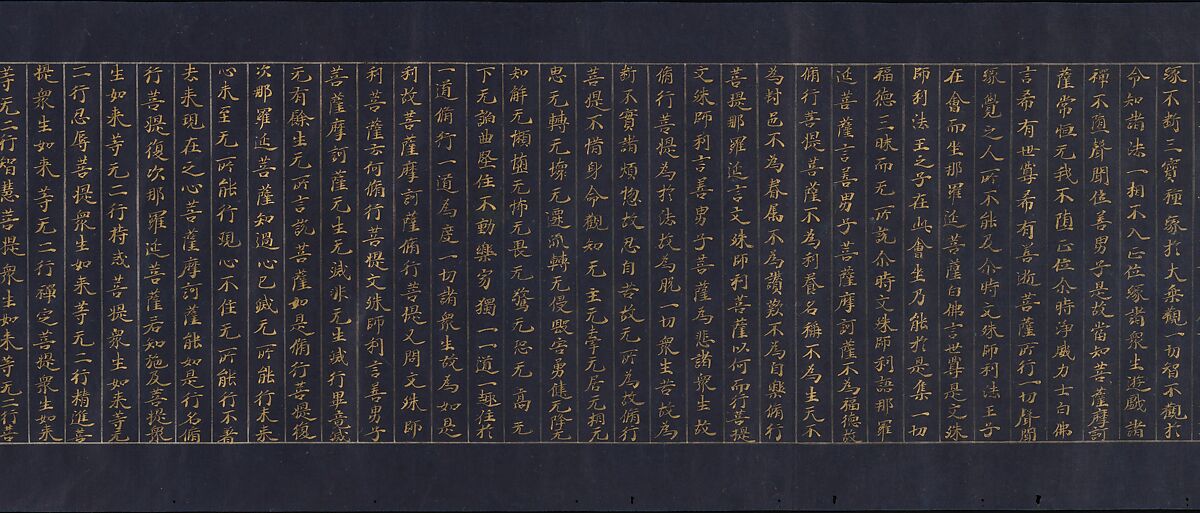 緣不断三寶種緣於大乘觀一切智不觀於
令知諸法一相不入正位緣諸衆生遊戲諸
禪不墮聲聞位善男子是故當知菩薩摩訶
薩常恒无我不墮正位尒時淨威力士白佛
言希有世尊希有善逝菩薩所行一切聲聞
緣覺之人所不能及尒時文殊師利法王子
在會而坐那羅延菩薩白佛言世尊是文殊
師利法王之子在此會坐乃能於是集一切
福德三昧而无所說尒時文殊師利語那羅
延菩薩言善男子菩薩摩訶薩不為福德故
脩行菩提菩薩不為利養名稱不為生天不
為封邑不為眷属不為讚歎不為自樂脩行
菩提那羅延言文殊師利菩薩以何而行菩提
文殊師利言善男子菩薩為悲諸衆生故
脩行菩提為於法故為脫一切衆生苦故為
断不實諸煩惱故忍自苦故无所為故脩行
菩提不惜身命觀知无主无牢无居无相无
思无轉无還轉无侵毀害勇健无降无
知解无怖无畏无驚无恐无高无
下无諂曲堅住不動樂獨一一道一趣住於
一道脩行一道為度一切諸衆生故為如是
利故菩薩摩訶薩脩行菩提又問文殊師
利菩薩云何脩行菩提文殊師利言善男子
菩薩摩訶薩无生无滅非无生滅行畢竟滅
无有餘生无所言說菩薩如是脩行菩提復
次那羅延菩薩知過心已滅无所能行未来
心未至无所能行現心不住无所能行不著
去来現在之心菩薩摩訶薩能如是行名脩
行菩提復次那羅延菩薩若知施及菩提衆
生如来等无二行持戒菩提衆生如来等无
二行忍辱菩提衆生如来等无二行精進菩
提衆生如来等无二行禪定菩提衆生如来
等无二行智慧菩提衆生如来等无二行菩